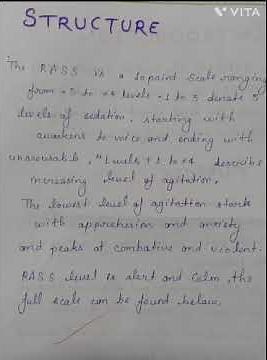 VITA
STRUCTURE
The RASS is a 10point scale ranging
from -5 to +4 levels -1 to 5 denote 5
levels of sedation, starting with
awakens to voice and ending with
unarousable. "Levels +1 to +4 describe
increasing level of agitation.
The lowest level of agitation starts
with apprehension and anxiety
and peaks at combative and violent.
RASS level is alert and Calm, the
full scale can be found below.